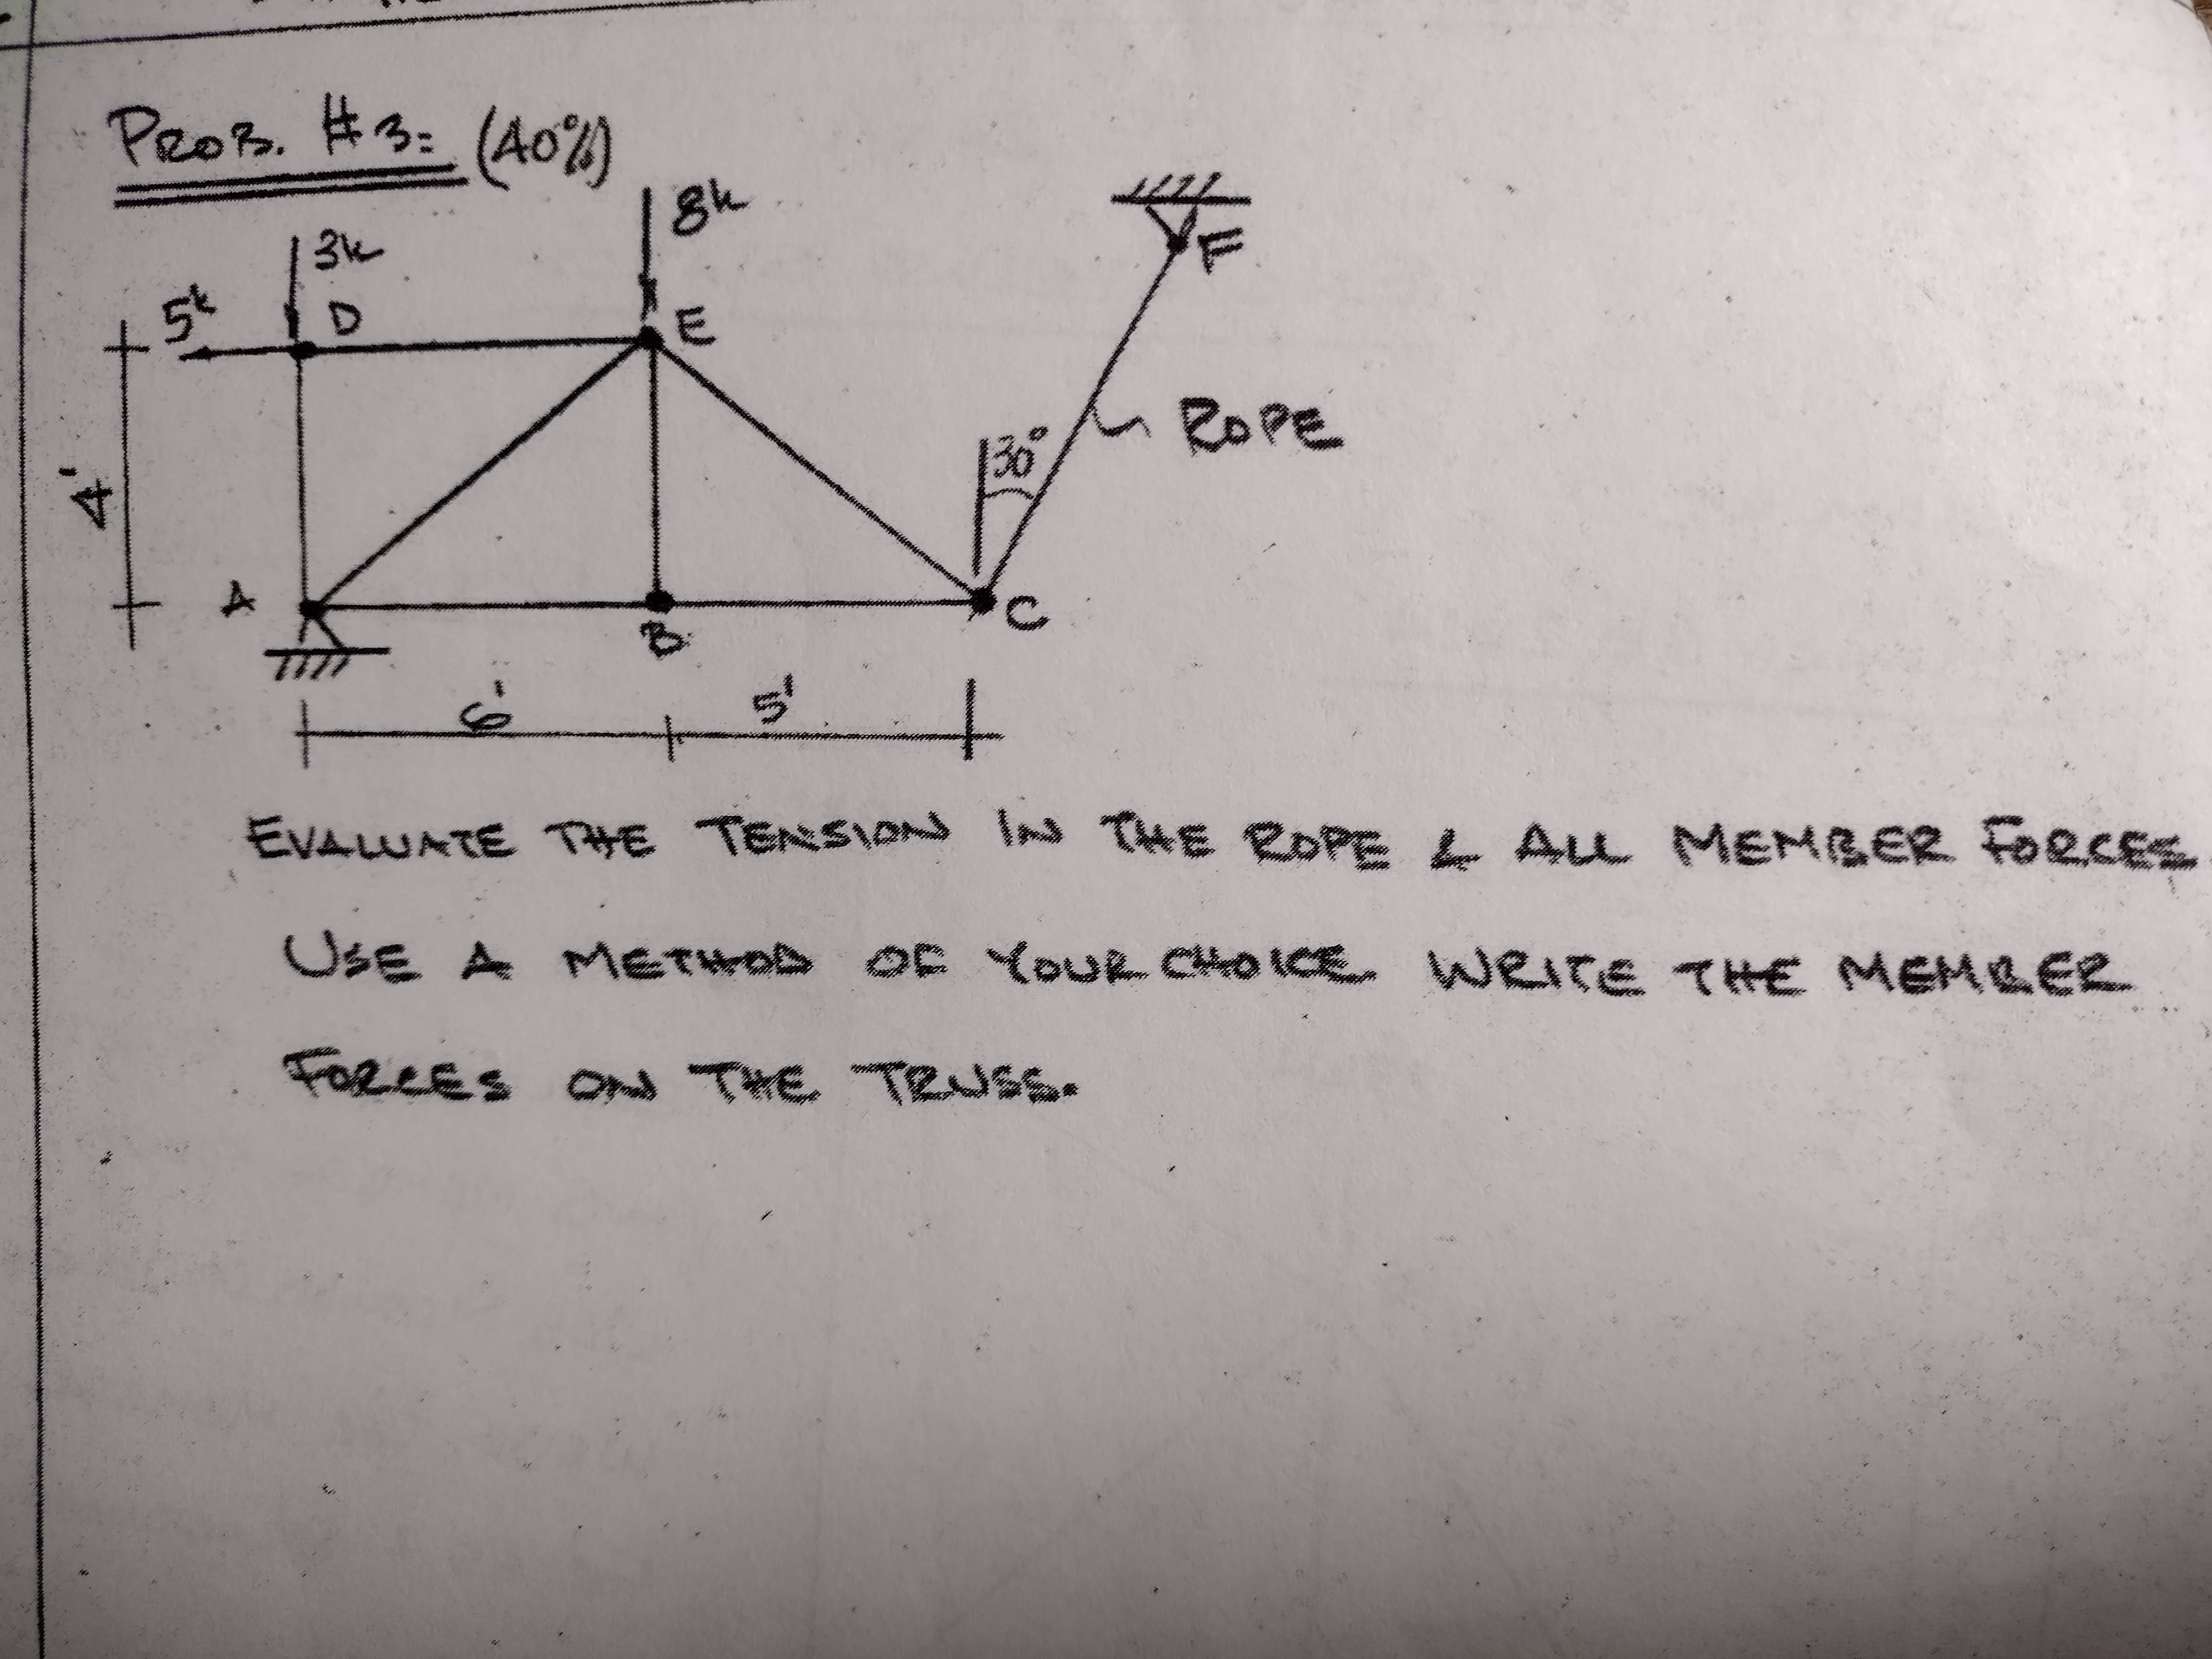 PROB. #3: (40%)
8k
3k
5k
D
E
F
ROPE
30°
4'
A
B
C
6'
5'
EVALUATE THE TENSION IN THE ROPE & ALL MEMBER FORCES.
USE A METHOD OF YOUR CHOICE. WRITE THE MEMBER
FORCES ON THE TRUSS.